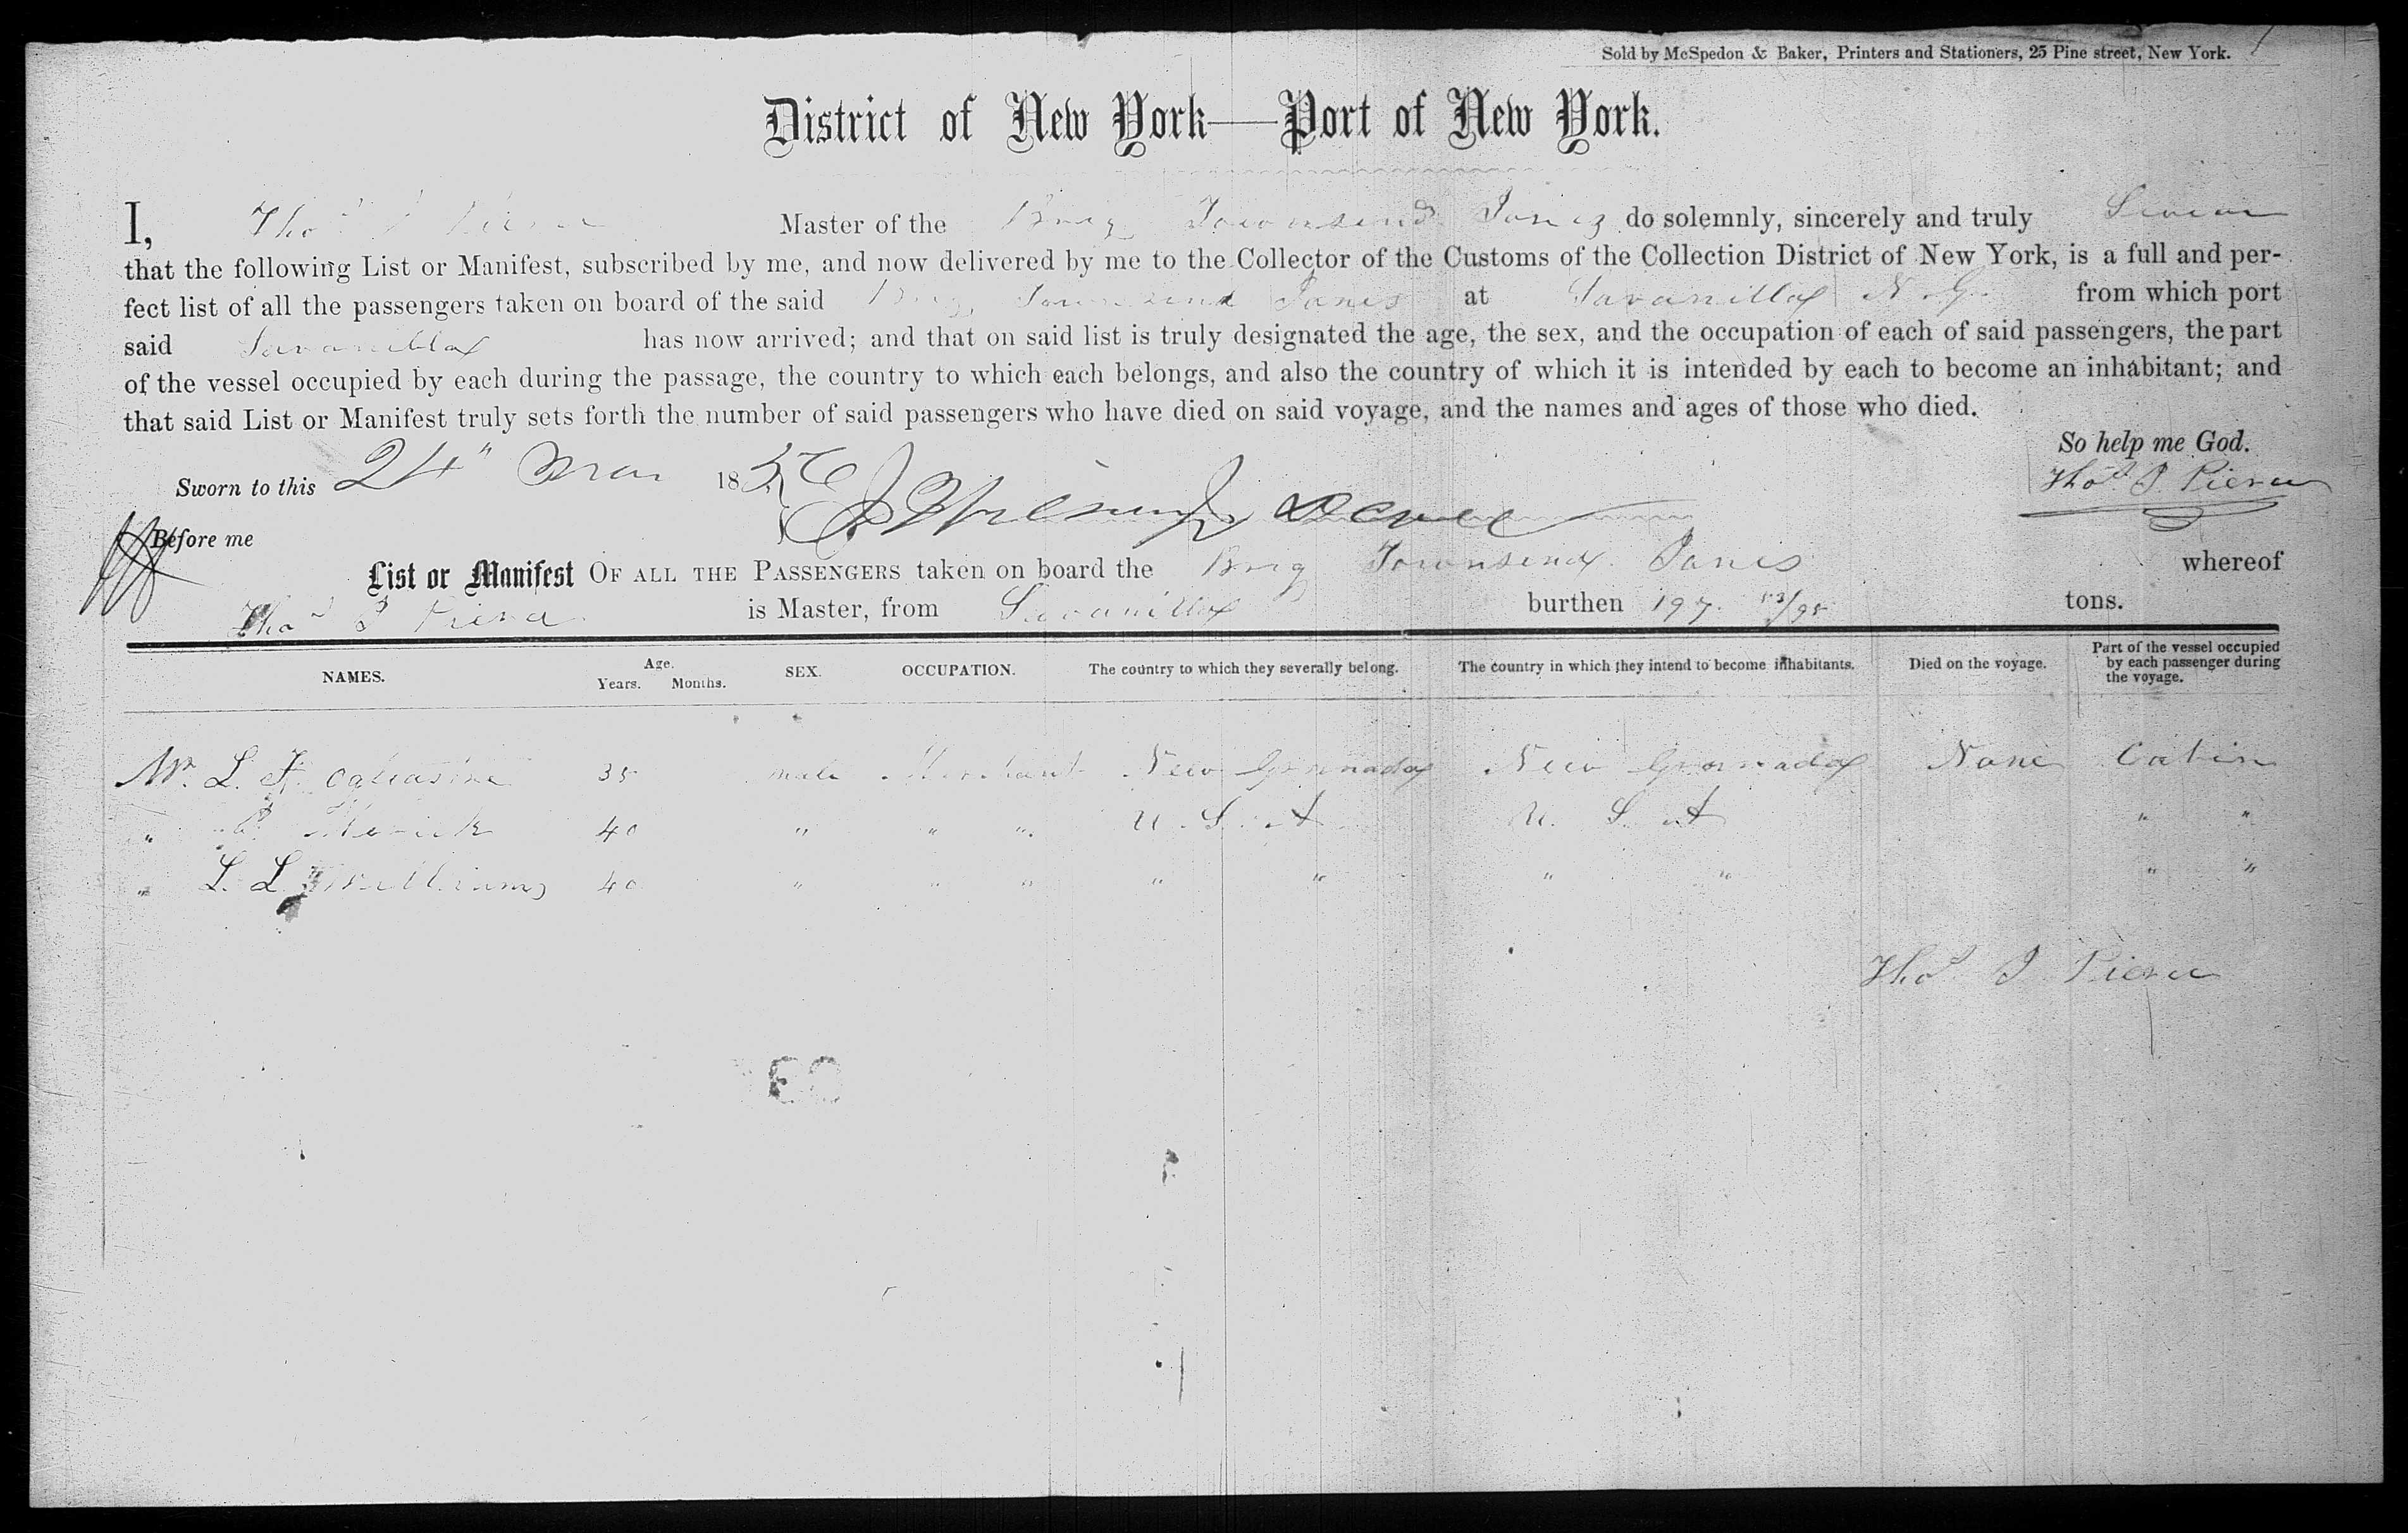 Sold by McSpedon & Baker, Printers and Stationers, 25 Pine street, New York.
District of New York—Port of New York.
I, Thos P Pierce Master of the Brig Townsend Jones do solemnly, sincerely and truly Swear
that the following List or Manifest, subscribed by me, and now delivered by me to the Collector of the Customs of the Collection District of New York, is a full and per-
fect list of all the passengers taken on board of the said Brig Townsend Jones at Savanilla N. G. from which port
said Savanilla has now arrived; and that on said list is truly designated the age, the sex, and the occupation of each of said passengers, the part
of the vessel occupied by each during the passage, the country to which each belongs, and also the country of which it is intended by each to become an inhabitant; and
that said List or Manifest truly sets forth the number of said passengers who have died on said voyage, and the names and ages of those who died.
So help me God.
Sworn to this 24" Mar 185 Thos P Pierce
Before me
List or Manifest OF ALL THE PASSENGERS taken on board the Brig Townsend Jones whereof
Thos P Pierce is Master, from Savanilla burthen 197 tons.
NAMES. Age. Years. Months. SEX. OCCUPATION. The country to which they severally belong. The country in which they intend to become inhabitants. Died on the voyage. Part of the vessel occupied by each passenger during the voyage.
Mr. L. F. 35 male Merchant New Granada New Granada None Cabin
" 40 " " " U. S. A U. S. A " "
" L. L. Williams 40 " " " " " " " " "
Thos P Pierce